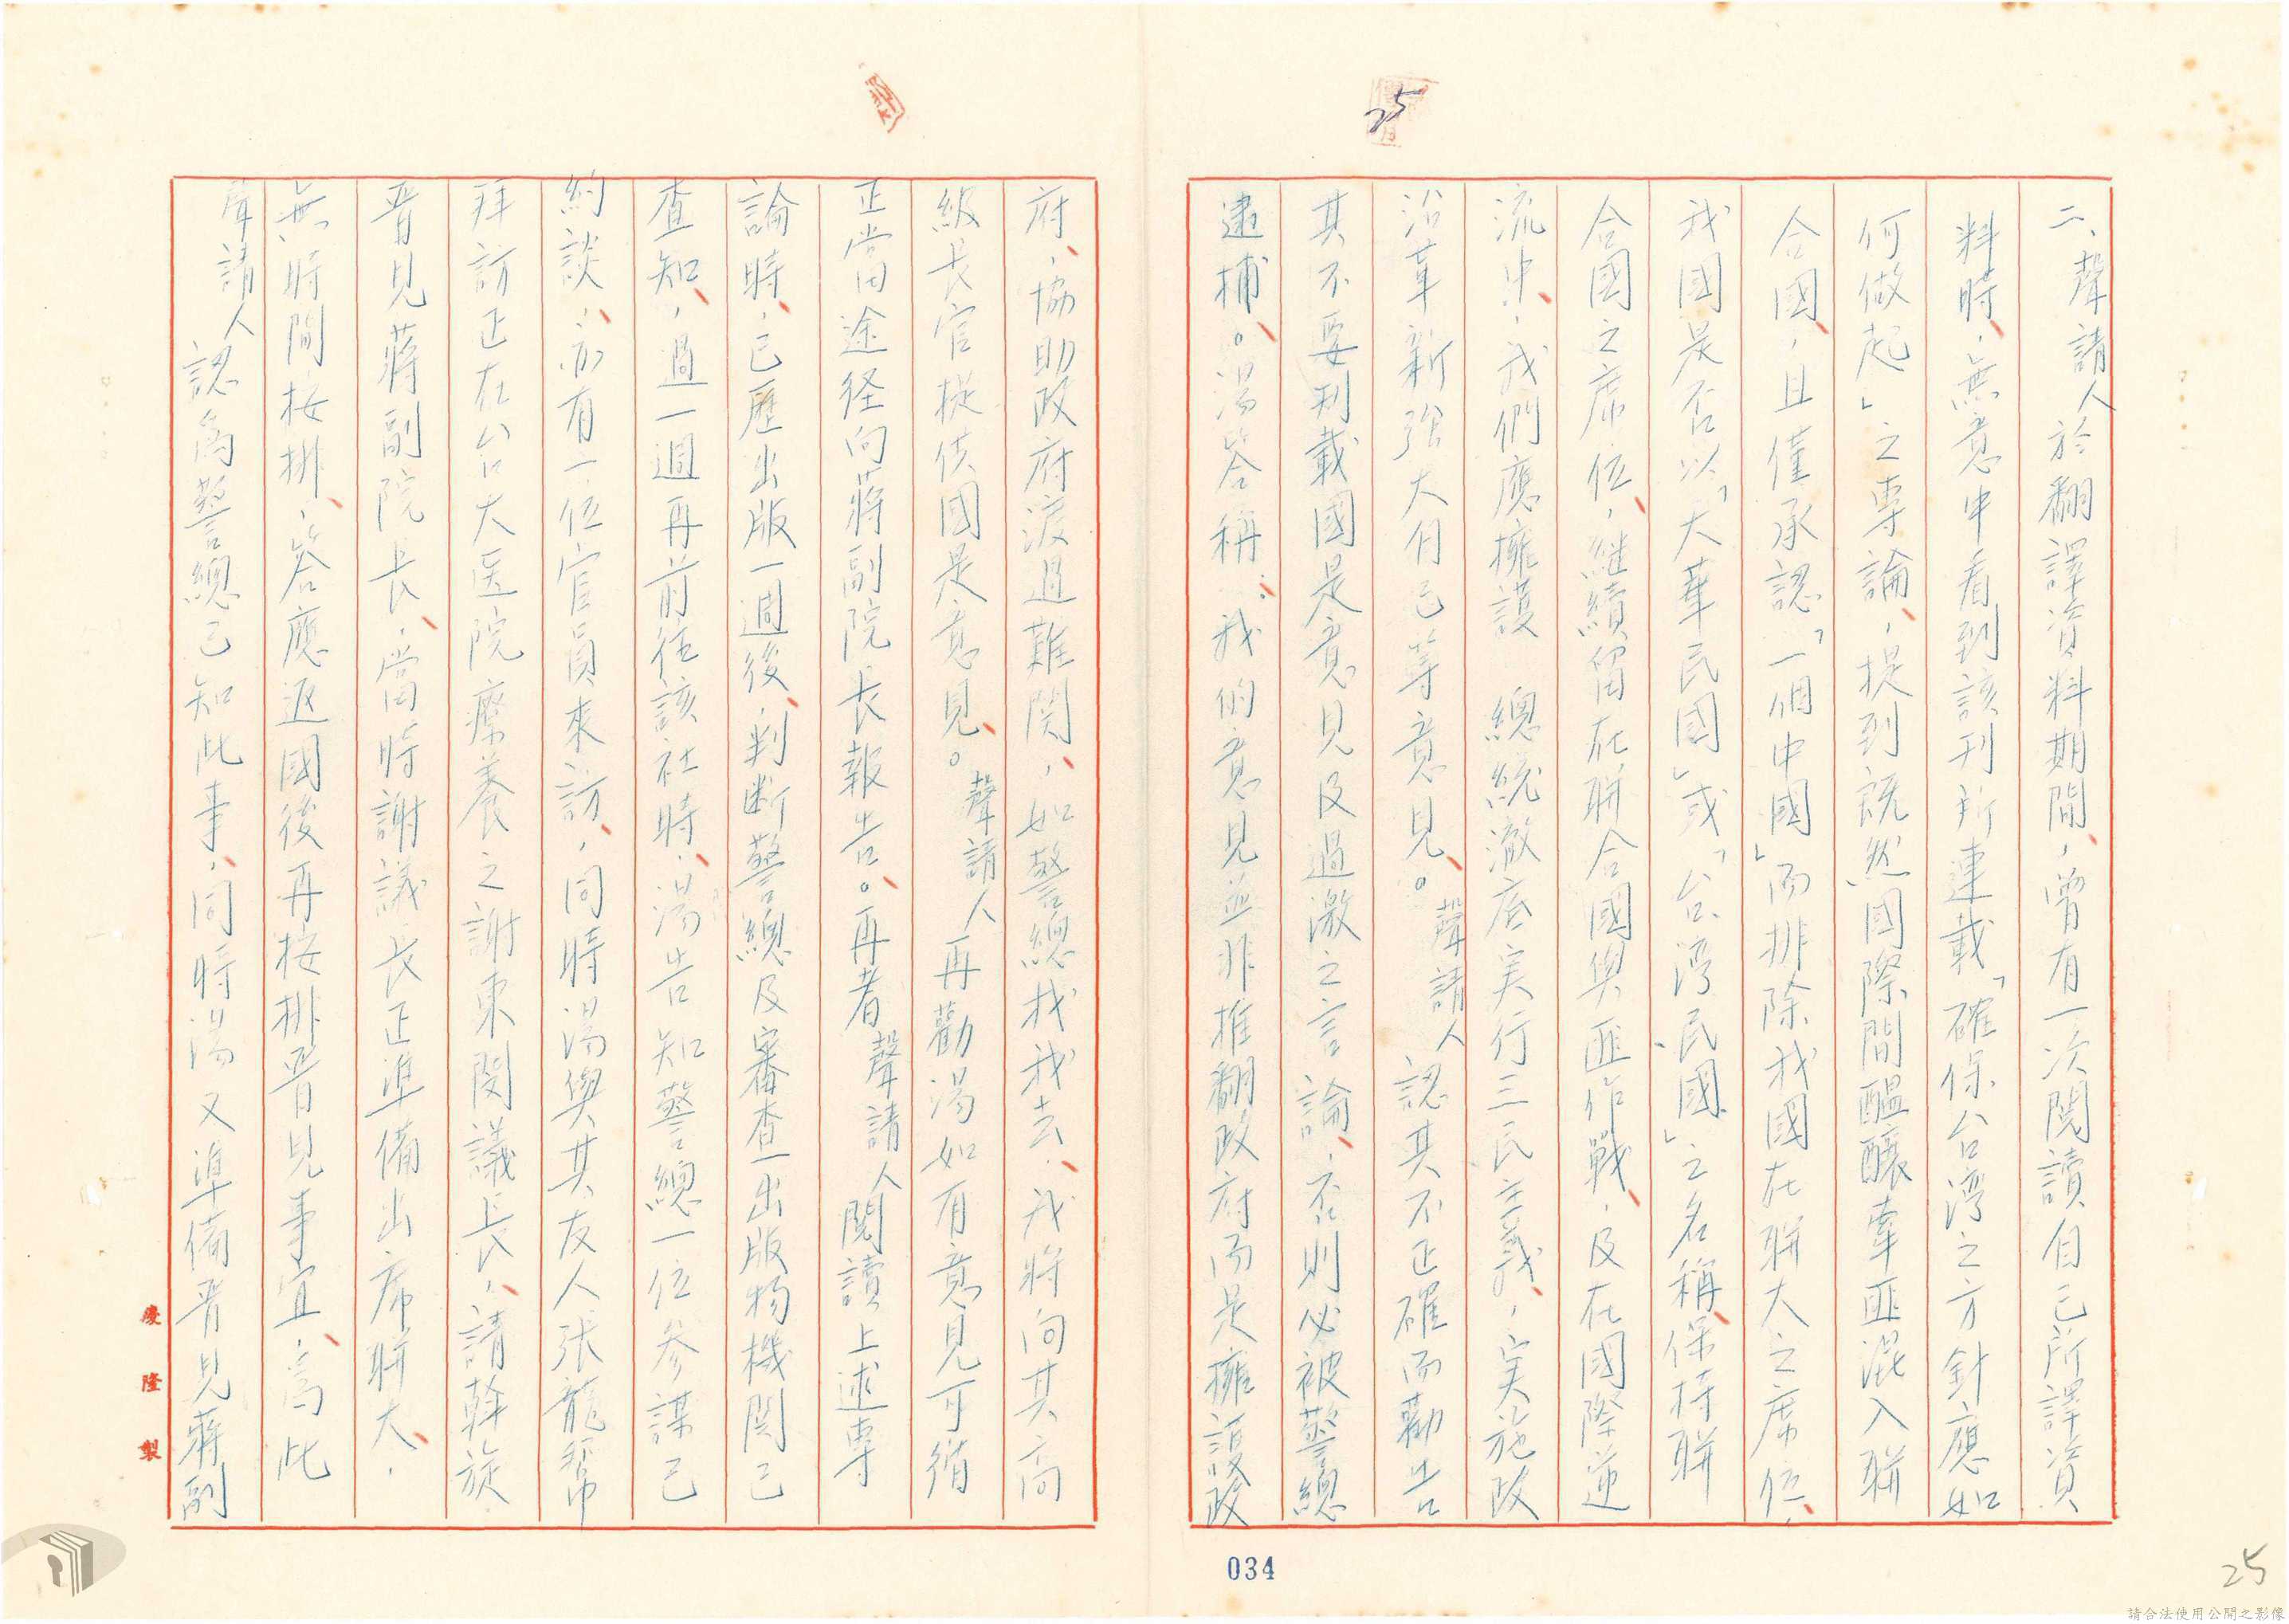 25
二、聲請人於翻譯資料期間，曾有一次閱讀自己所譯資
料時，無意中看到該刊所連載「確保台湾之方針應如
何做起」之専論，提到既然国際間醞釀牽匪混入聯
合國，且僅承認「一個中國」而排除我國在聯大之席位，
我國是否以「大華民國」或「台湾民國」之名稱保持聯
合國之席位，継續留在聯合國與匪作戰，及在國際逆
流中，我們應擁護　總統澈底実行三民主義，実施政
治革新強大自己等意見。聲請人認其不正確而勸告
其不要刊載國是意見及過激之言論，否則必被警總
逮捕。湯答稱：我的意見並非推翻政府而是擁護政
府，協助政府渡過難関，如警總找我去，我将向其高
級长官提供國是意見。聲請人再勸湯如有意見可循
正當途径向蔣副院长報告。再者聲請人閱讀上述専
論時，已歷出版一週後，判断警總及審查出版物機関已
查知，過一週再前往該社時，湯告知警總一位参謀已
約談，亦有一位官員來訪，同時湯與其友人张龍幣
拜訪正在台大医院療養之謝東閔議长，請斡旋
晋見蔣副院长，當時謝議长正準備出席聯大，
無時間按排，答應返國後再按排晋見事宜，為此
聲請人認為警總已知此事，同時湯又準備晋見蔣副
慶隆製
034
25
請合法使用公開之影像